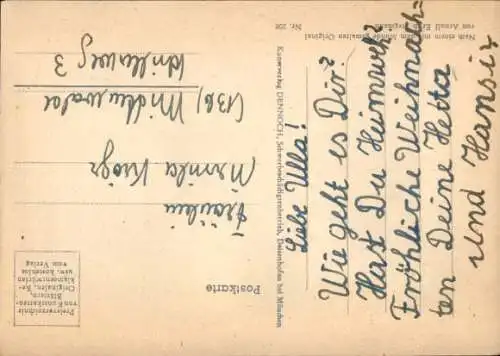 Nach einem mit dem Munde gemalten Original
von Arnulf Erich Stegmann
Nr. 208
Liebe Ulla!
Wie geht es Dir?
Hast Du Heimweh?
Fröhliche Weihnach=
ten Deine Hetta
und Hansiz
Kunstverlag DENNOCH, Schwerbeschädigtenbetrieb, Deisenhofen bei München
Postkarte
Fräulein
Ursula Kröger
(13b) Mittenwald
3
Preisverzeichnis
von Kunstkarten-
Bildern,
Originalen, Re-
Eigenentwürfen
usw. kostenlos
vom Verlag